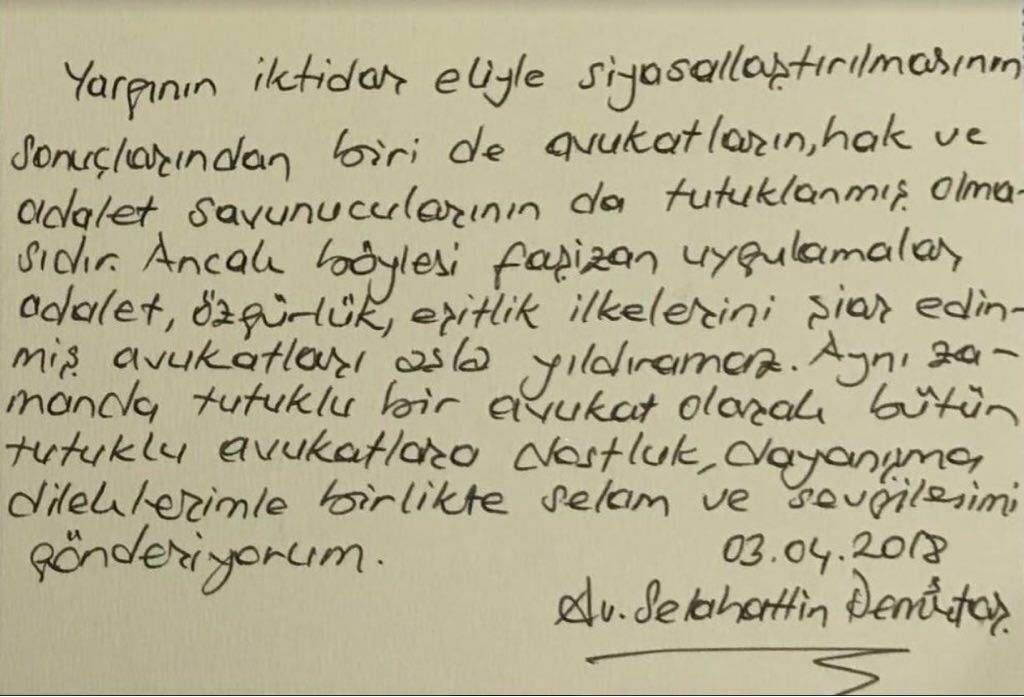 Yargının iktidar eliyle siyasallaştırılmasının
sonuçlarından biri de avukatların, hak ve
adalet savunucularının da tutuklanmış olma-
sıdır. Ancak böylesi faşizan uygulamalar
adalet, özgürlük, eşitlik ilkelerini şiar edin-
miş avukatları asla yıldıramaz. Aynı za-
manda tutuklu bir avukat olarak bütün
tutuklu avukatlara dostluk, dayanışma
dileklerimle birlikte selam ve sevgilerimi
gönderiyorum.
03.04.2018
Av. Selahattin Demirtaş